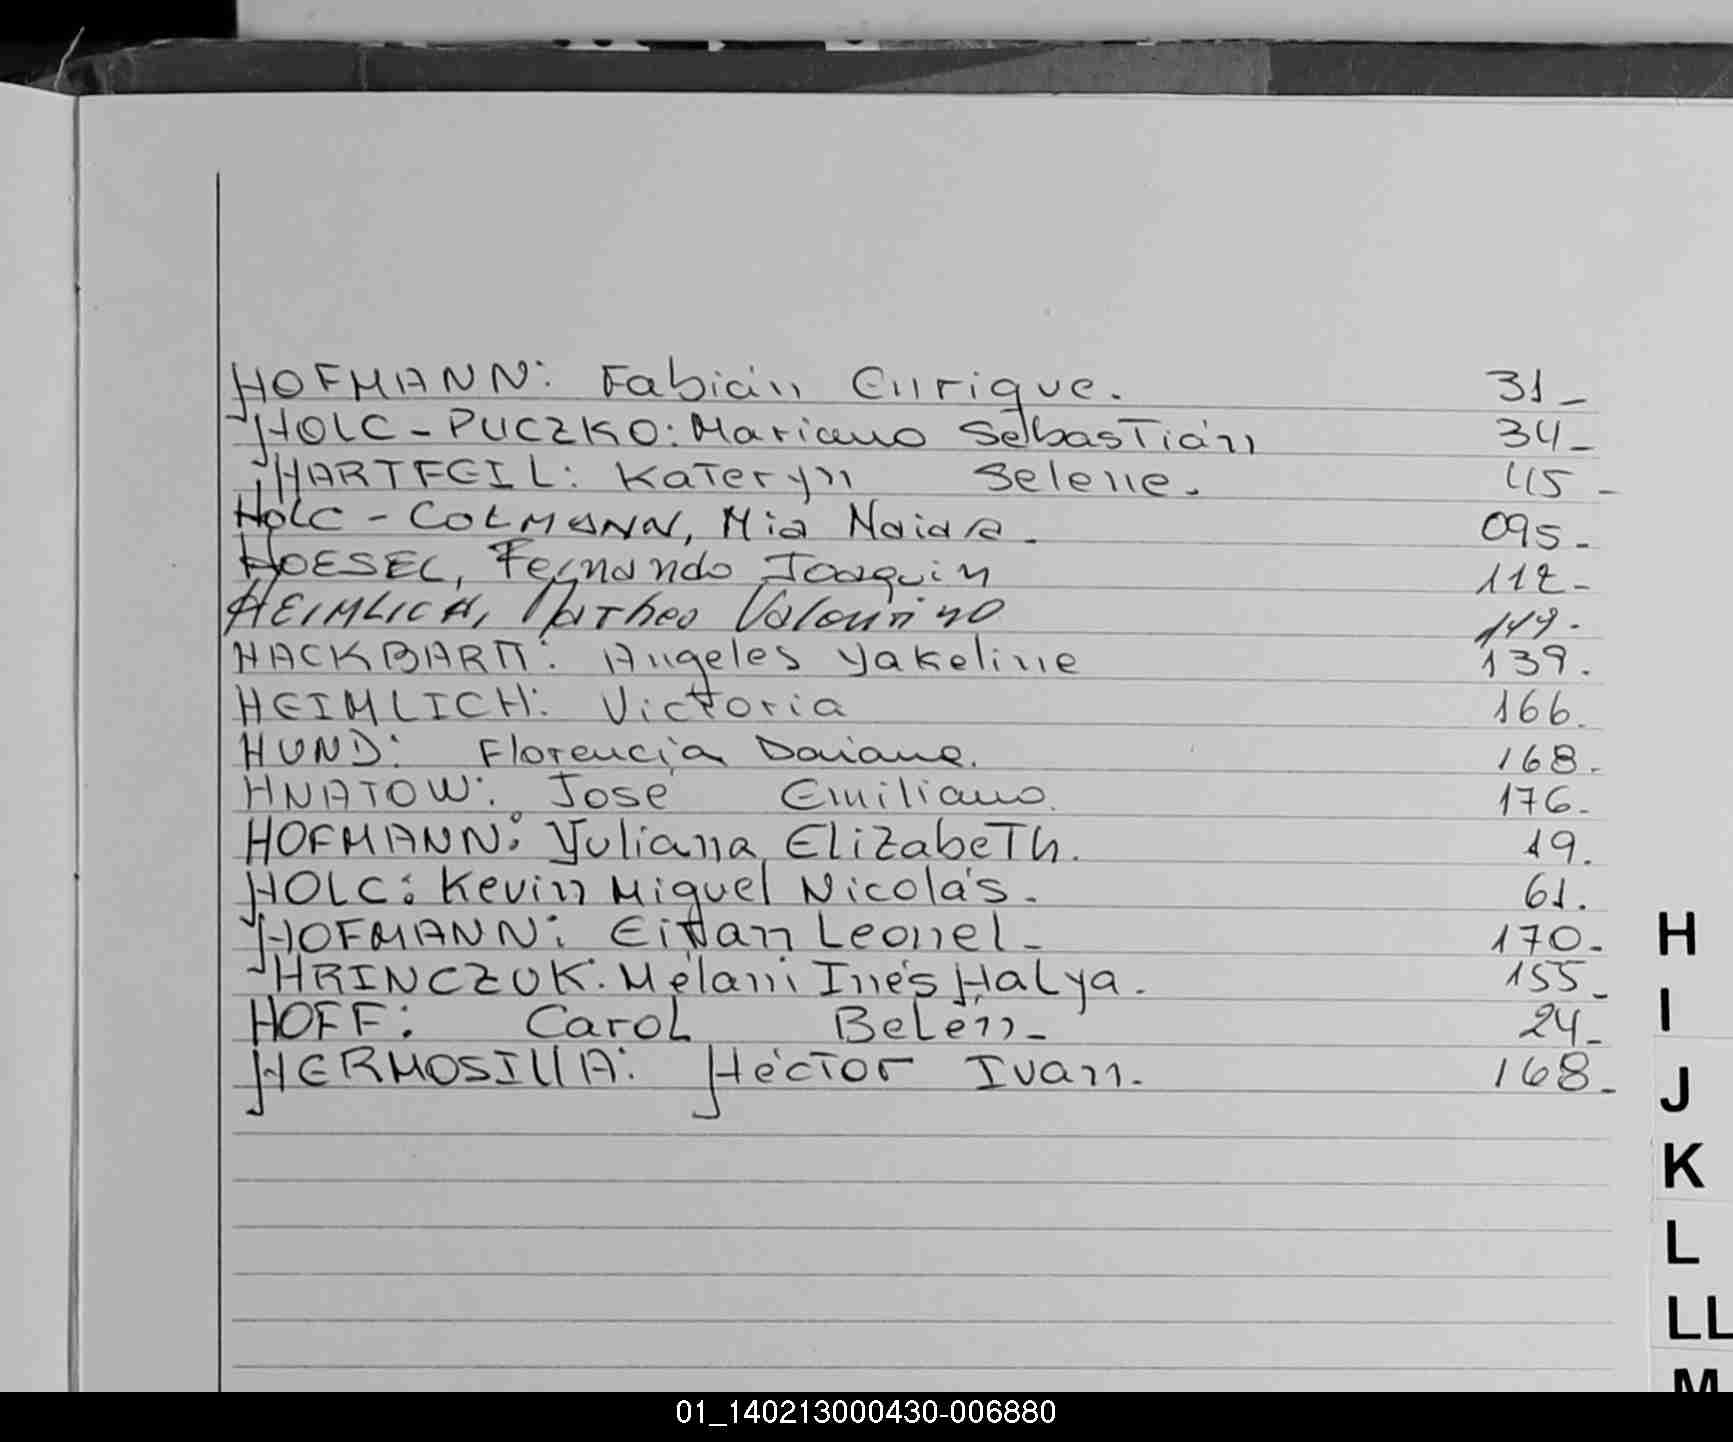 HOFMANN: Fabián Enrique. 31_
HOLC-PUCZKO: Mariano SebasTián 34_
HARTFEIL: KaTeryn Selene. 45_
HOLC-COLMANN, Mia Naiara. 095-
HOESEL, Fernando Joaquin 112-
HEIMLICH, Matheo Valentino 149.
HACKBARTT: Angeles Yakeline 139.
HEIMLICH: Victoria 166.
HUND: Florencia Daiana. 168.
HNATOW: José Emiliano. 176.
HOFMANN: Yuliana ElizabeTh. 19.
HOLC: Kevin Miguel Nicolás. 61.
HOFMANN: Eitan Leonel_ 170.
HRINCZUK. Mélani Inés Halya. 155_
HOFF: Carol Belén_ 24_
HERMOSILLA: HécTor Ivan. 168_
H
I
J
K
L
LL
M
01_140213000430-006880